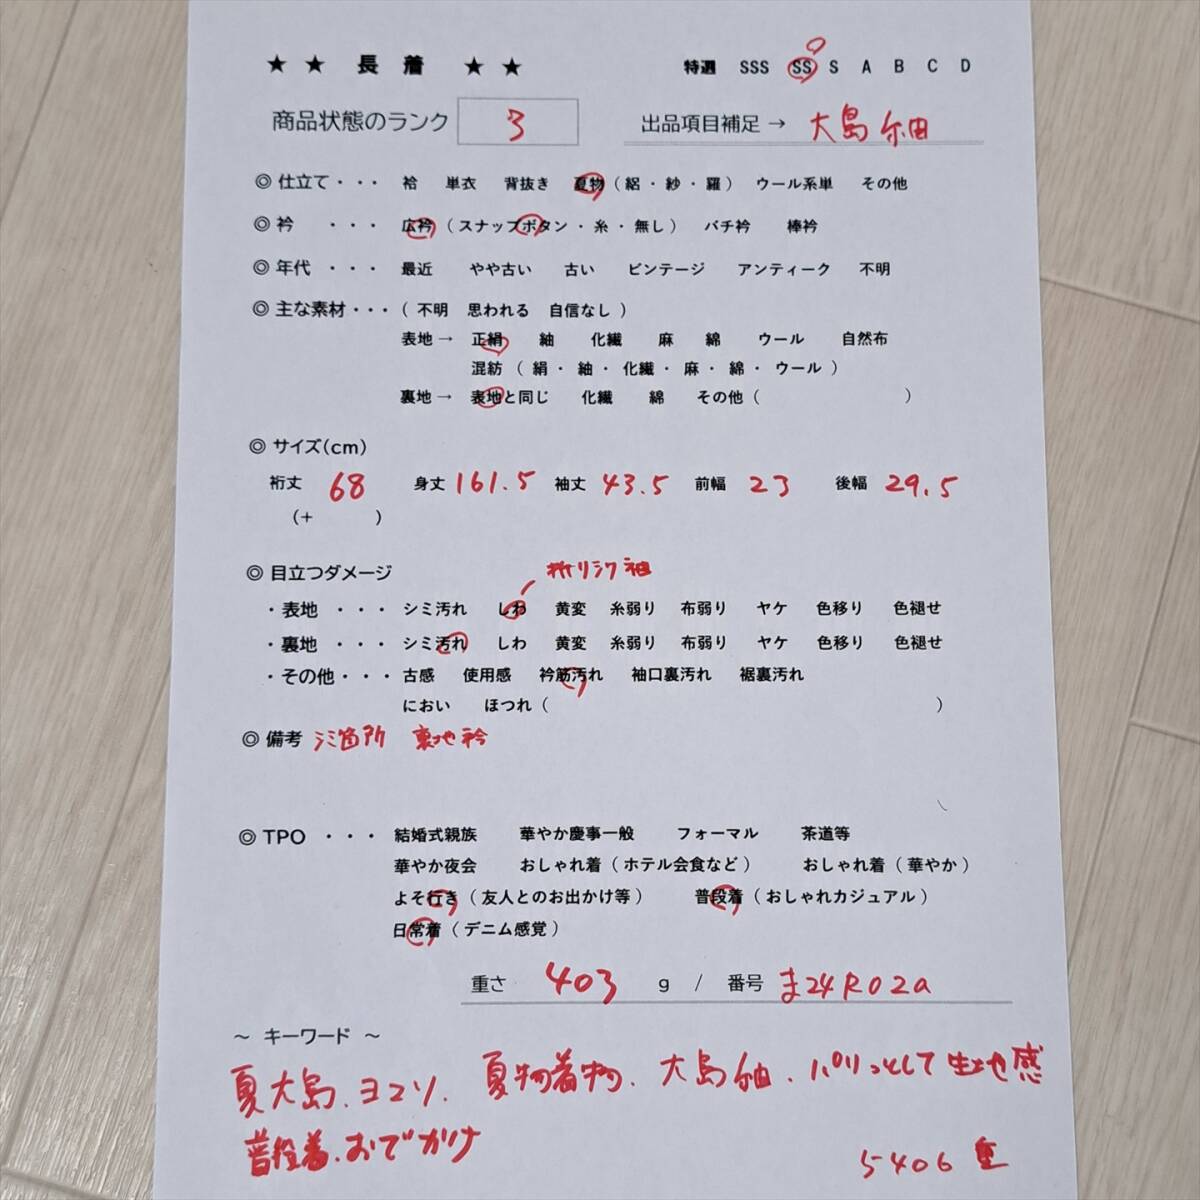 ★ ★ 長 着 ★ ★ 特選 SSS SS S A B C D
商品状態のランク 3 出品項目補足 → 大島紬
◎ 仕立て・・・ 袷 単衣 背抜き 夏物 ( 絽 ・ 紗 ・ 羅 ) ウール系単 その他
◎ 衿 ・・・ 広衿 ( スナップボタン ・ 糸 ・ 無し ) バチ衿 棒衿
◎ 年代 ・・・ 最近 やや古い 古い ビンテージ アンティーク 不明
◎ 主な素材・・・ ( 不明 思われる 自信なし )
表地 → 正絹 紬 化繊 麻 綿 ウール 自然布
混紡 ( 絹 ・ 紬 ・ 化繊 ・ 麻 ・ 綿 ・ ウール )
裏地 → 表地と同じ 化繊 綿 その他 ( )
◎ サイズ(cm)
裄丈 68 身丈 161.5 袖丈 43.5 前幅 23 後幅 29.5
(+ )
◎ 目立つダメージ 折りシワ 袖
・表地 ・・・ シミ汚れ しわ 黄変 糸弱り 布弱り ヤケ 色移り 色褪せ
・裏地 ・・・ シミ汚れ しわ 黄変 糸弱り 布弱り ヤケ 色移り 色褪せ
・その他・・・ 古感 使用感 衿筋汚れ 袖口裏汚れ 裾裏汚れ
におい ほつれ ( )
◎ 備考 シミ箇所 裏地衿
◎ TPO ・・・ 結婚式親族 華やか慶事一般 フォーマル 茶道等
華やか夜会 おしゃれ着 ( ホテル会食など ) おしゃれ着 ( 華やか )
よそ行き ( 友人とのお出かけ等 ) 普段着 ( おしゃれカジュアル )
日常着 ( デニム感覚 )
重さ 403 g / 番号 ま24R02a
～ キーワード ～
夏大島、ヨコソ、夏物着物、大島紬、パリっとして生地感
普段着、おでかけ
5406